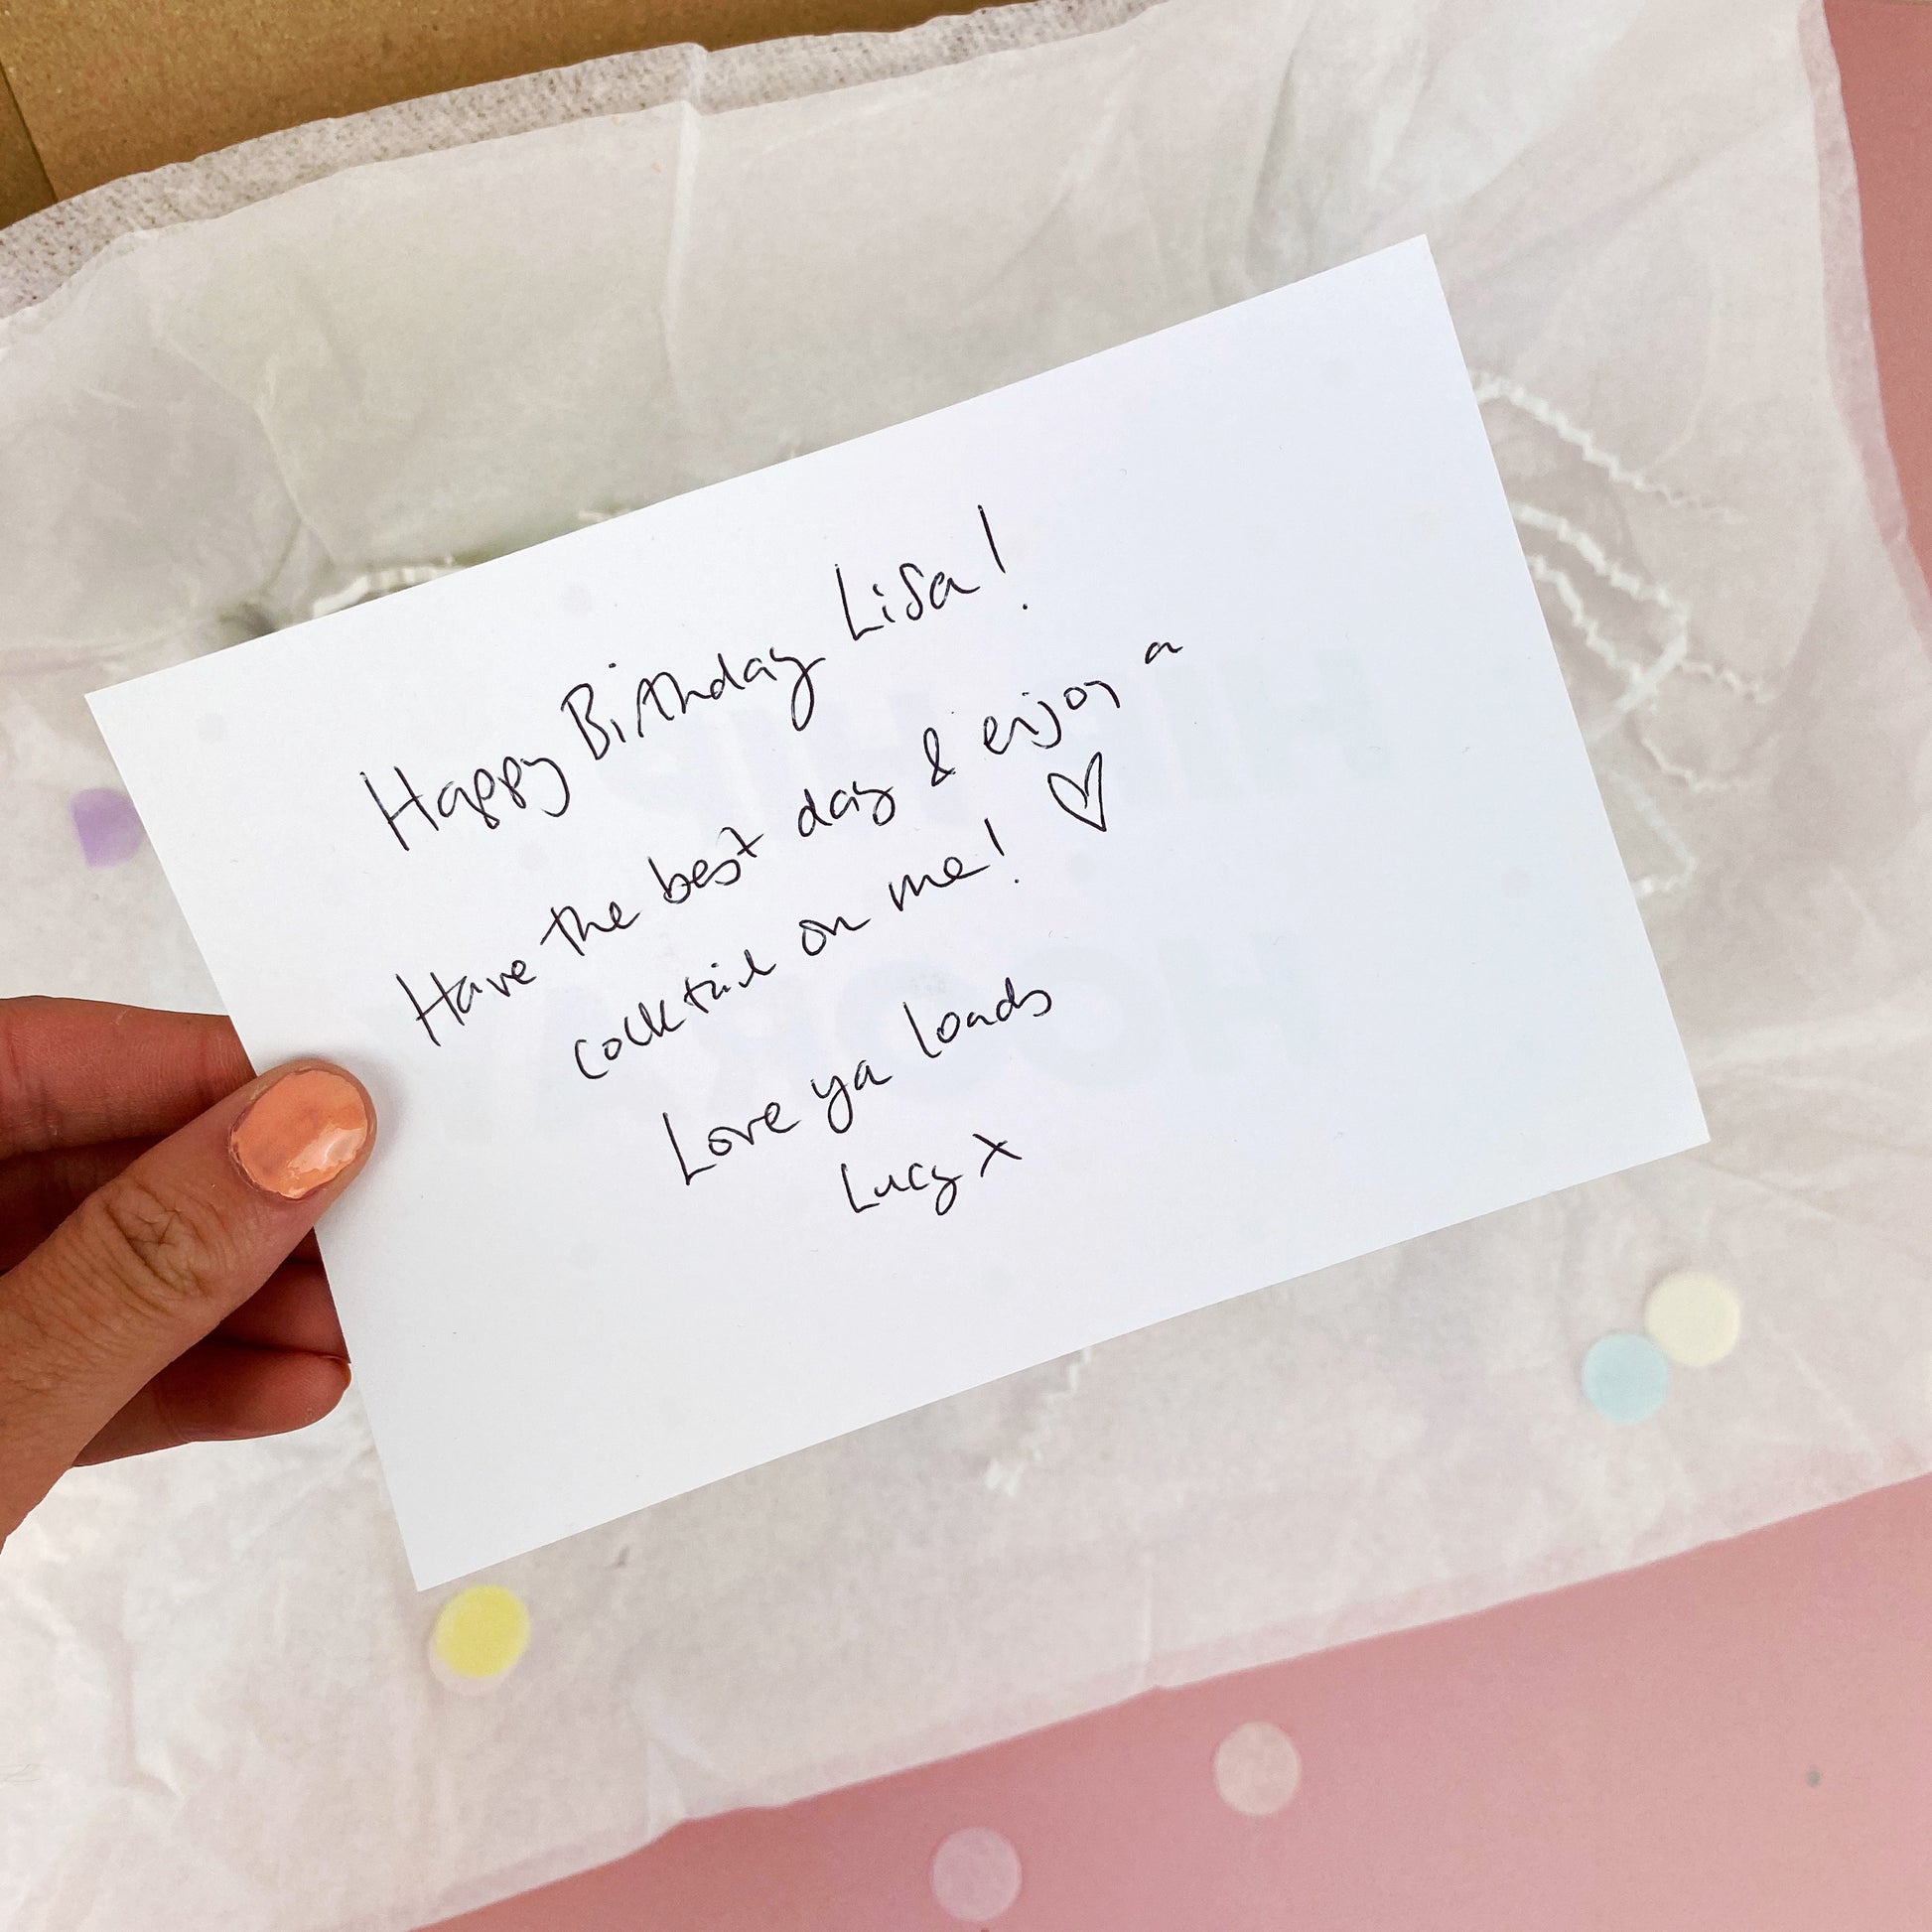 Happy Birthday Lisa!
Have the best day & enjoy a
cocktail on me! ♡
Love ya loads
Lucy x